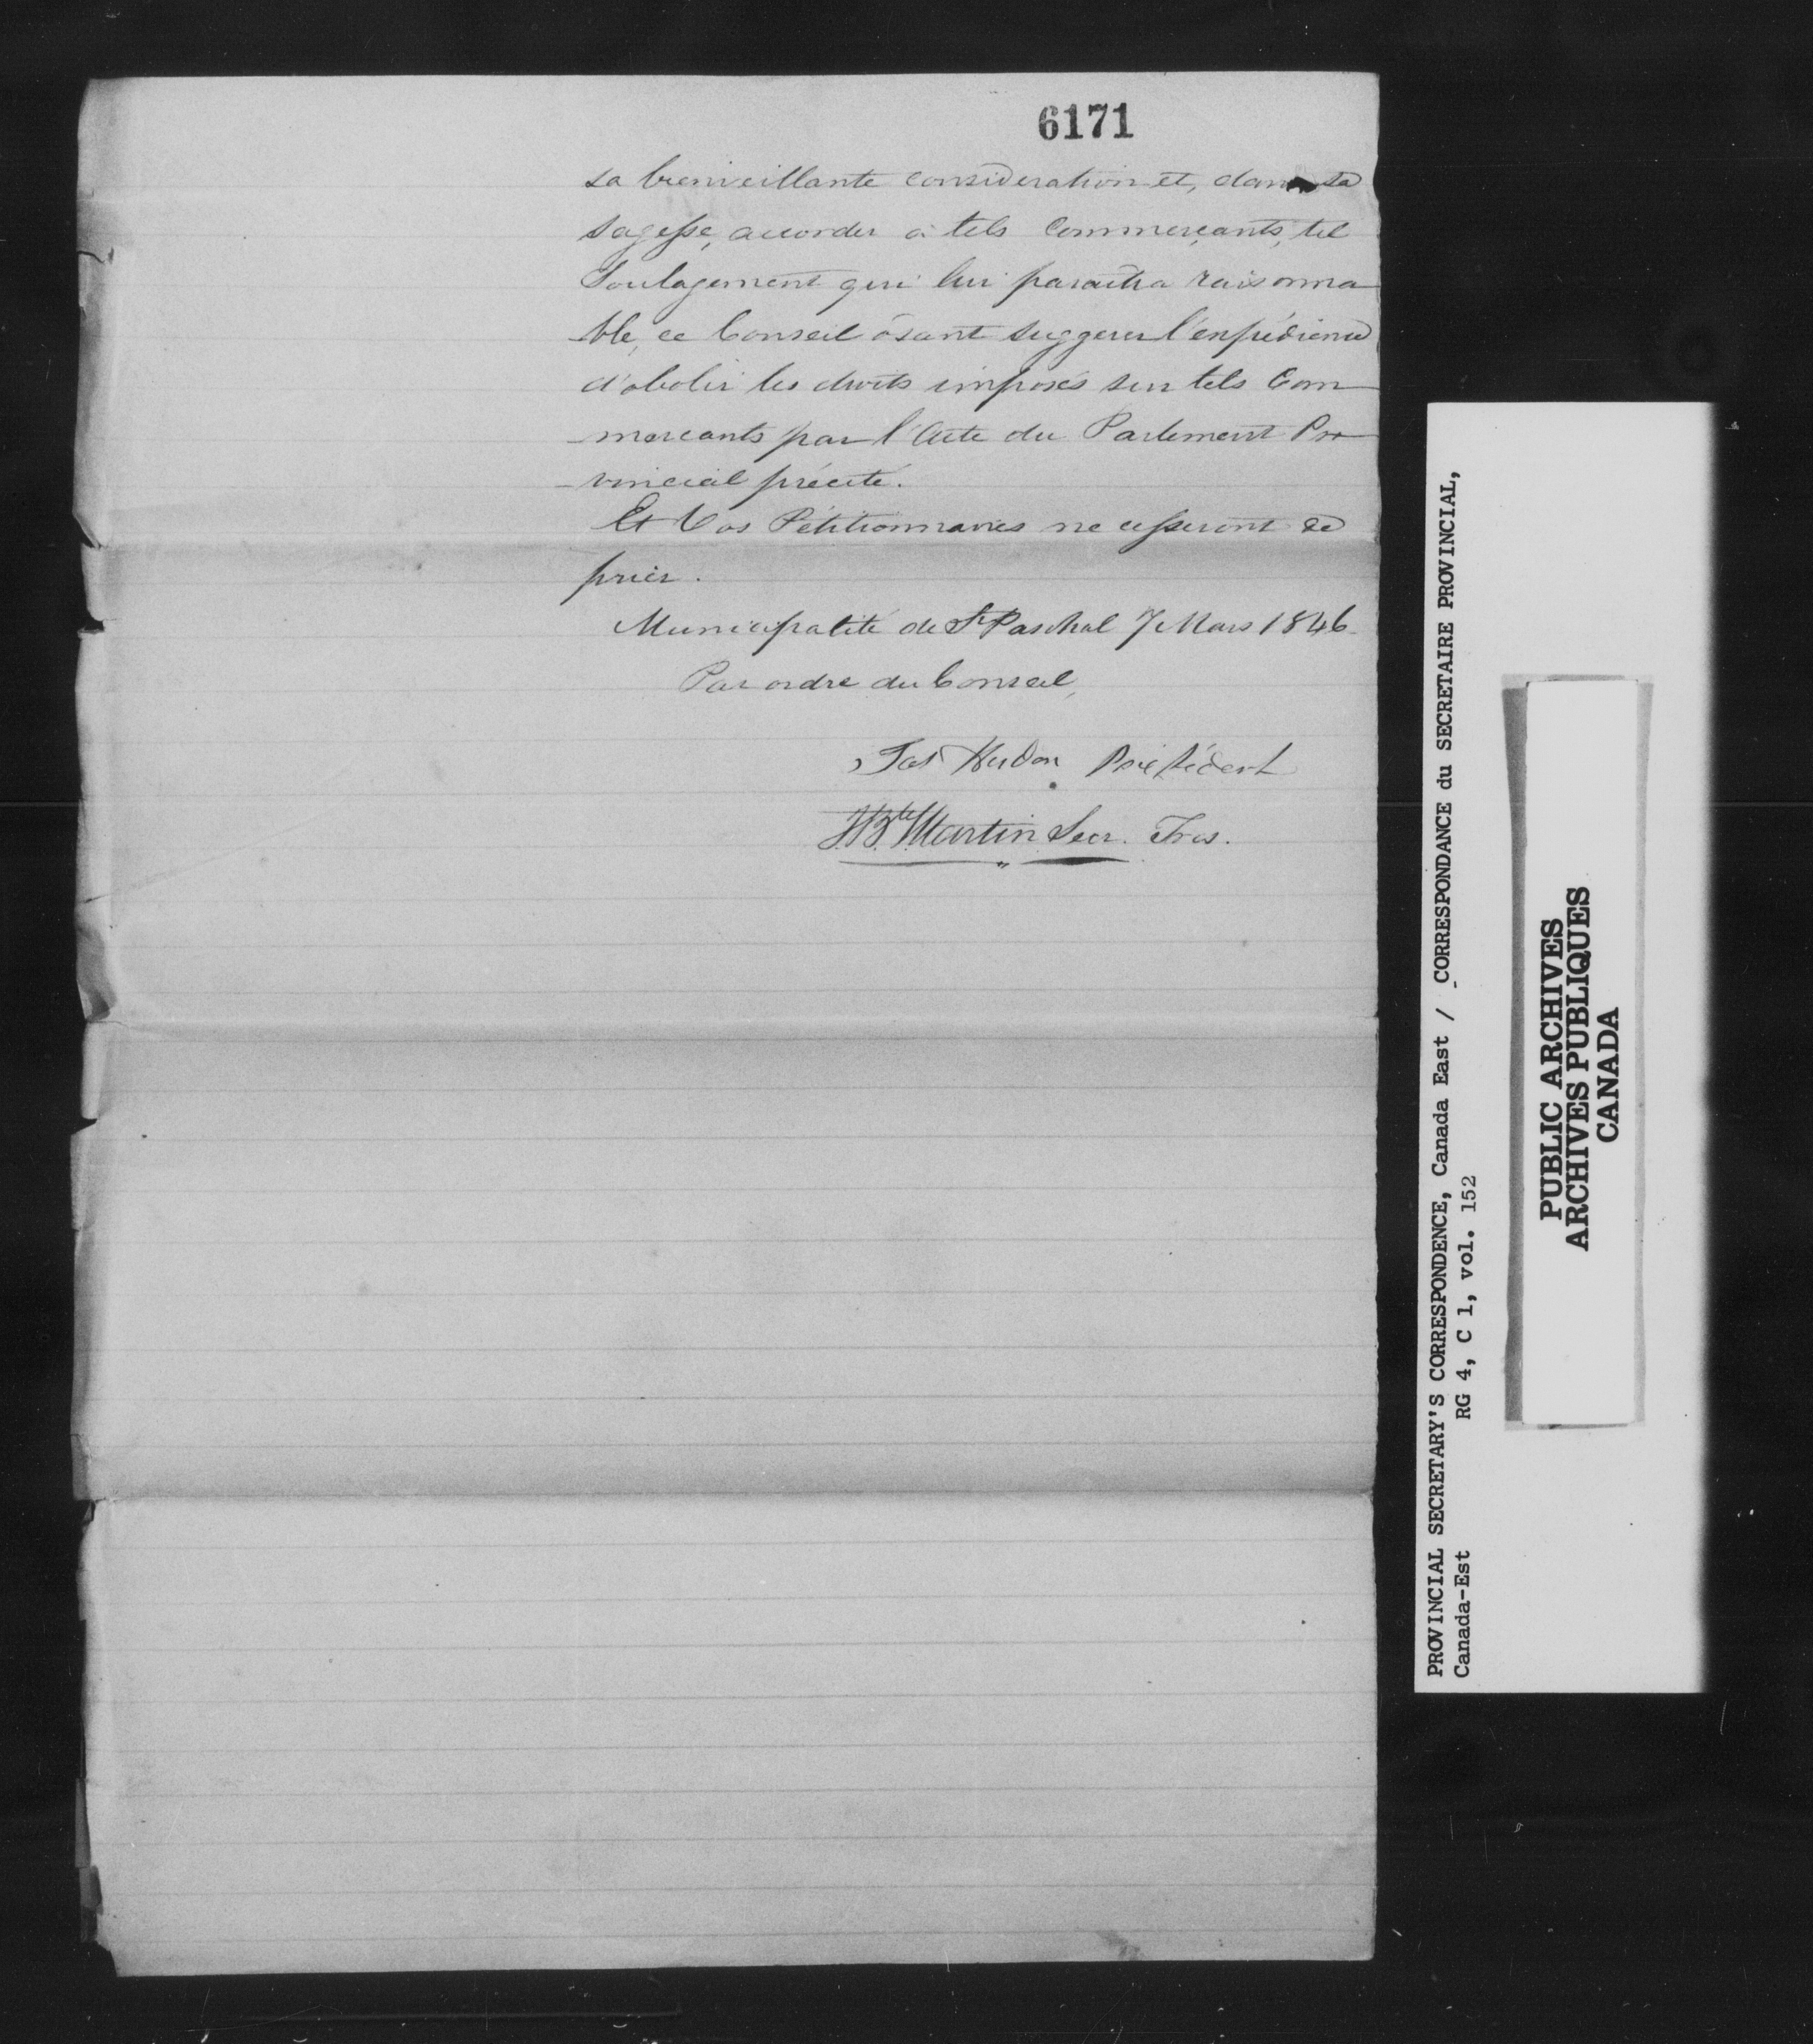 6171
sa bienveillante consideration et, dans sa
sagesse, accorder à tels Commerçants, tel
Soulagement qui lui paraîtra raisonna
-ble, ce Conseil ôsant suggerer l'expédience
d'abolir les droits imposés sur tels Com
-mercants par l'Acte du Parlement Pro
-vincial précité.
Et Vos Pétitionnaires ne cesseront de
prier.
Municipalité de St Paschal 7 Mars 1846
Par ordre du Conseil,
Hudon Président
Martin Secr. Tres.
PROVINCIAL SECRETARY'S CORRESPONDENCE, Canada East / CORRESPONDANCE du SECRETAIRE PROVINCIAL,
Canada-Est RG 4, C 1, vol. 152
PUBLIC ARCHIVES
ARCHIVES PUBLIQUES
CANADA